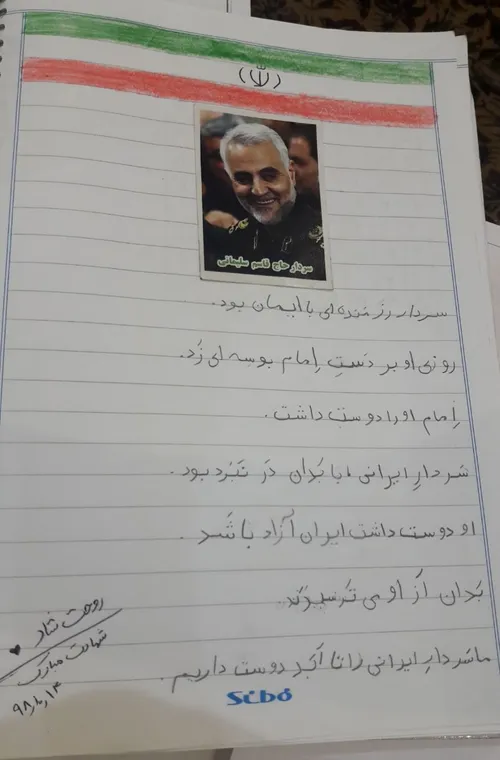 (الله)
سردار حاج قاسم سلیمانی
سردار رزمنده‌ای با ایمان بود.
روزی او بر دَستِ اِمام بوسه ای زَد.
اِمام او را دوست داشت.
سَردارِ ایرانی ، با بَدان دَر نَبَرد بود.
او دوست داشت ایران آزاد باشَد.
بَدان اَز او می تَرسیدَند.
ما سَردارِ ایرانی را تا اَبَد دوست داریم.
روحت شاد ♥
شهادت مبارک
98
Sibo